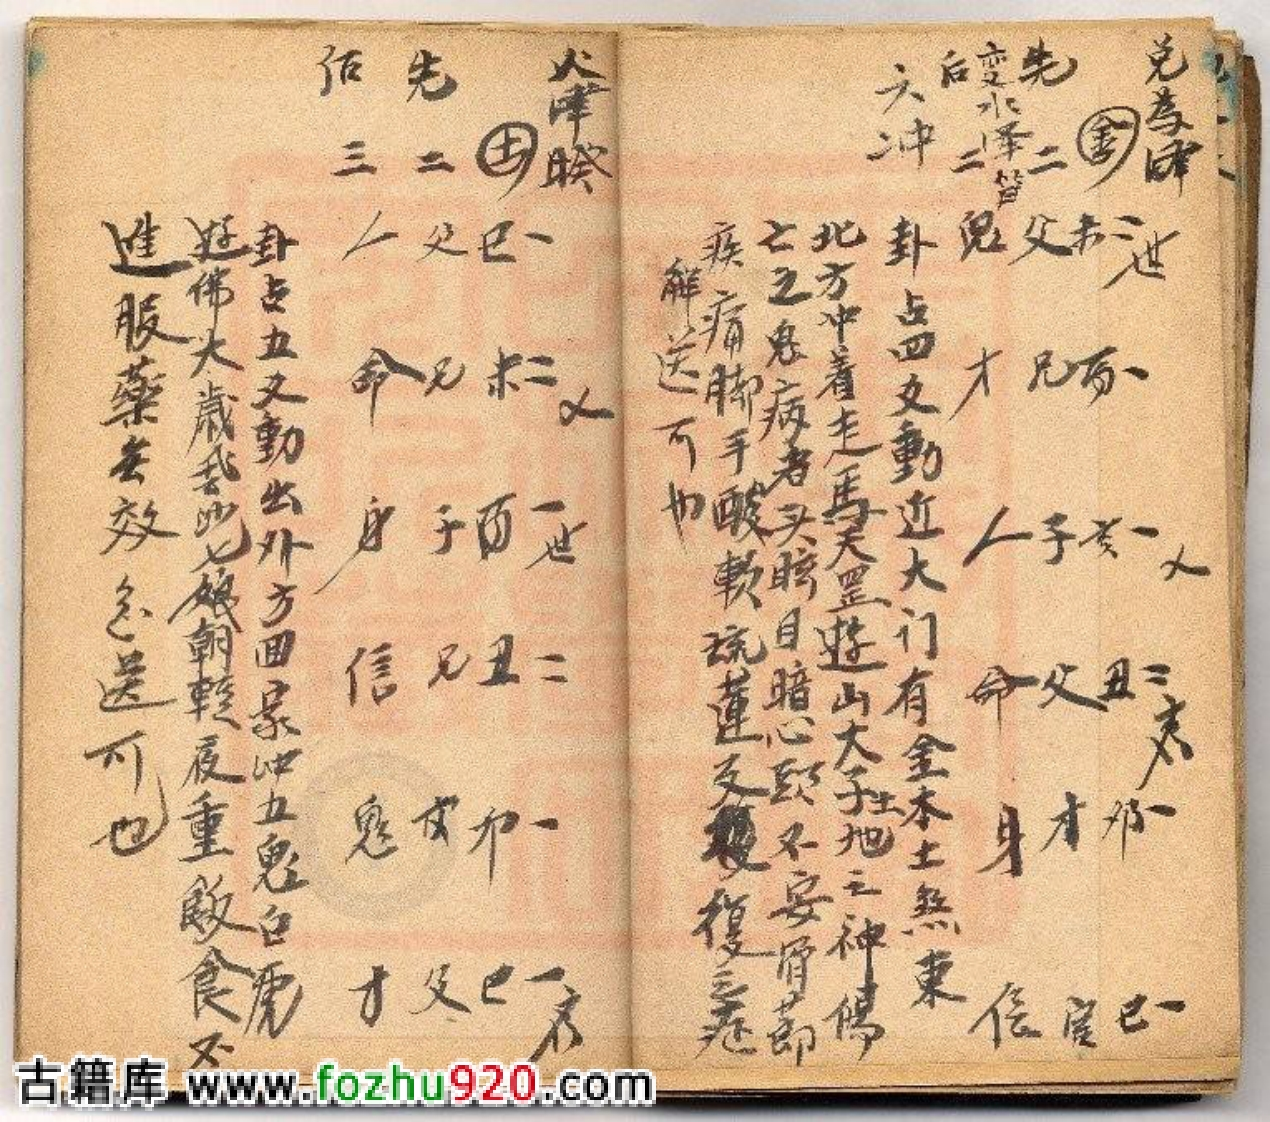 兑為澤
金
先二
变水泽節
后二
六冲
未二世
酉一
亥一乂
丑二應
卯一
巳一
父
兄
子
父
才
官
鬼
才
人
命
身
信
卦占四爻動近大门有金木土煞東
北方冲着走馬天罡遊山大子土地之神傷
亡五鬼病者头眩目暗心頭不安骨節
疾痛脚手酸軟琉蓮反復復之症
解送可也
火澤睽
土
先二
后三
巳一
未二乂
酉一世
丑二
卯一
巳一應
父
兄
子
兄
官
父
人
命
身
信
鬼
才
卦占五爻動出外方回家冲五鬼白虎
好佛大歲 七娘朝輕夜重飲食不
進服藥無效急送可也
古籍库 www.fozhu920.com